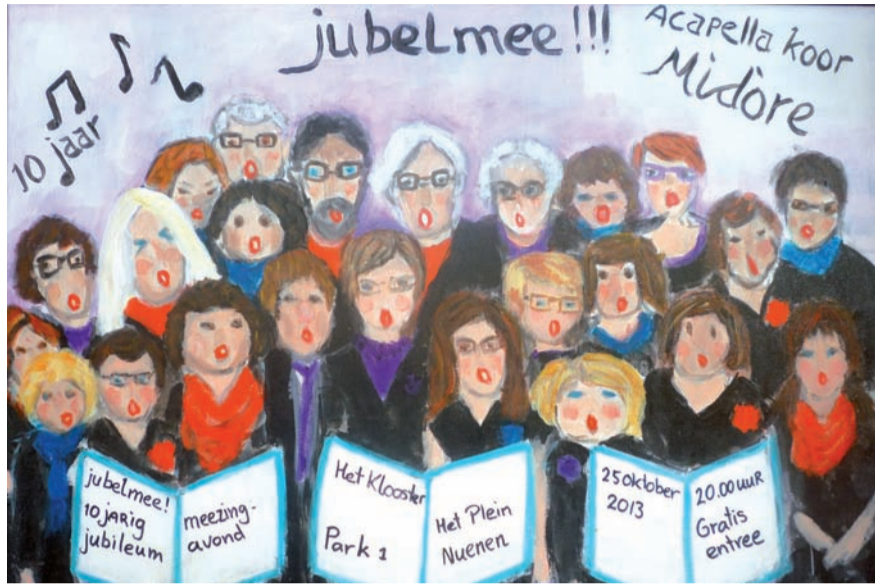 jubelmee!!!
Acapella koor
Midore
10 jaar
jubelmee!
10 jarig
jubileum
meezing-
avond
Het Klooster
Park 1
Het Plein
Nuenen
25 oktober
2013
20.00 uur
Gratis
entree